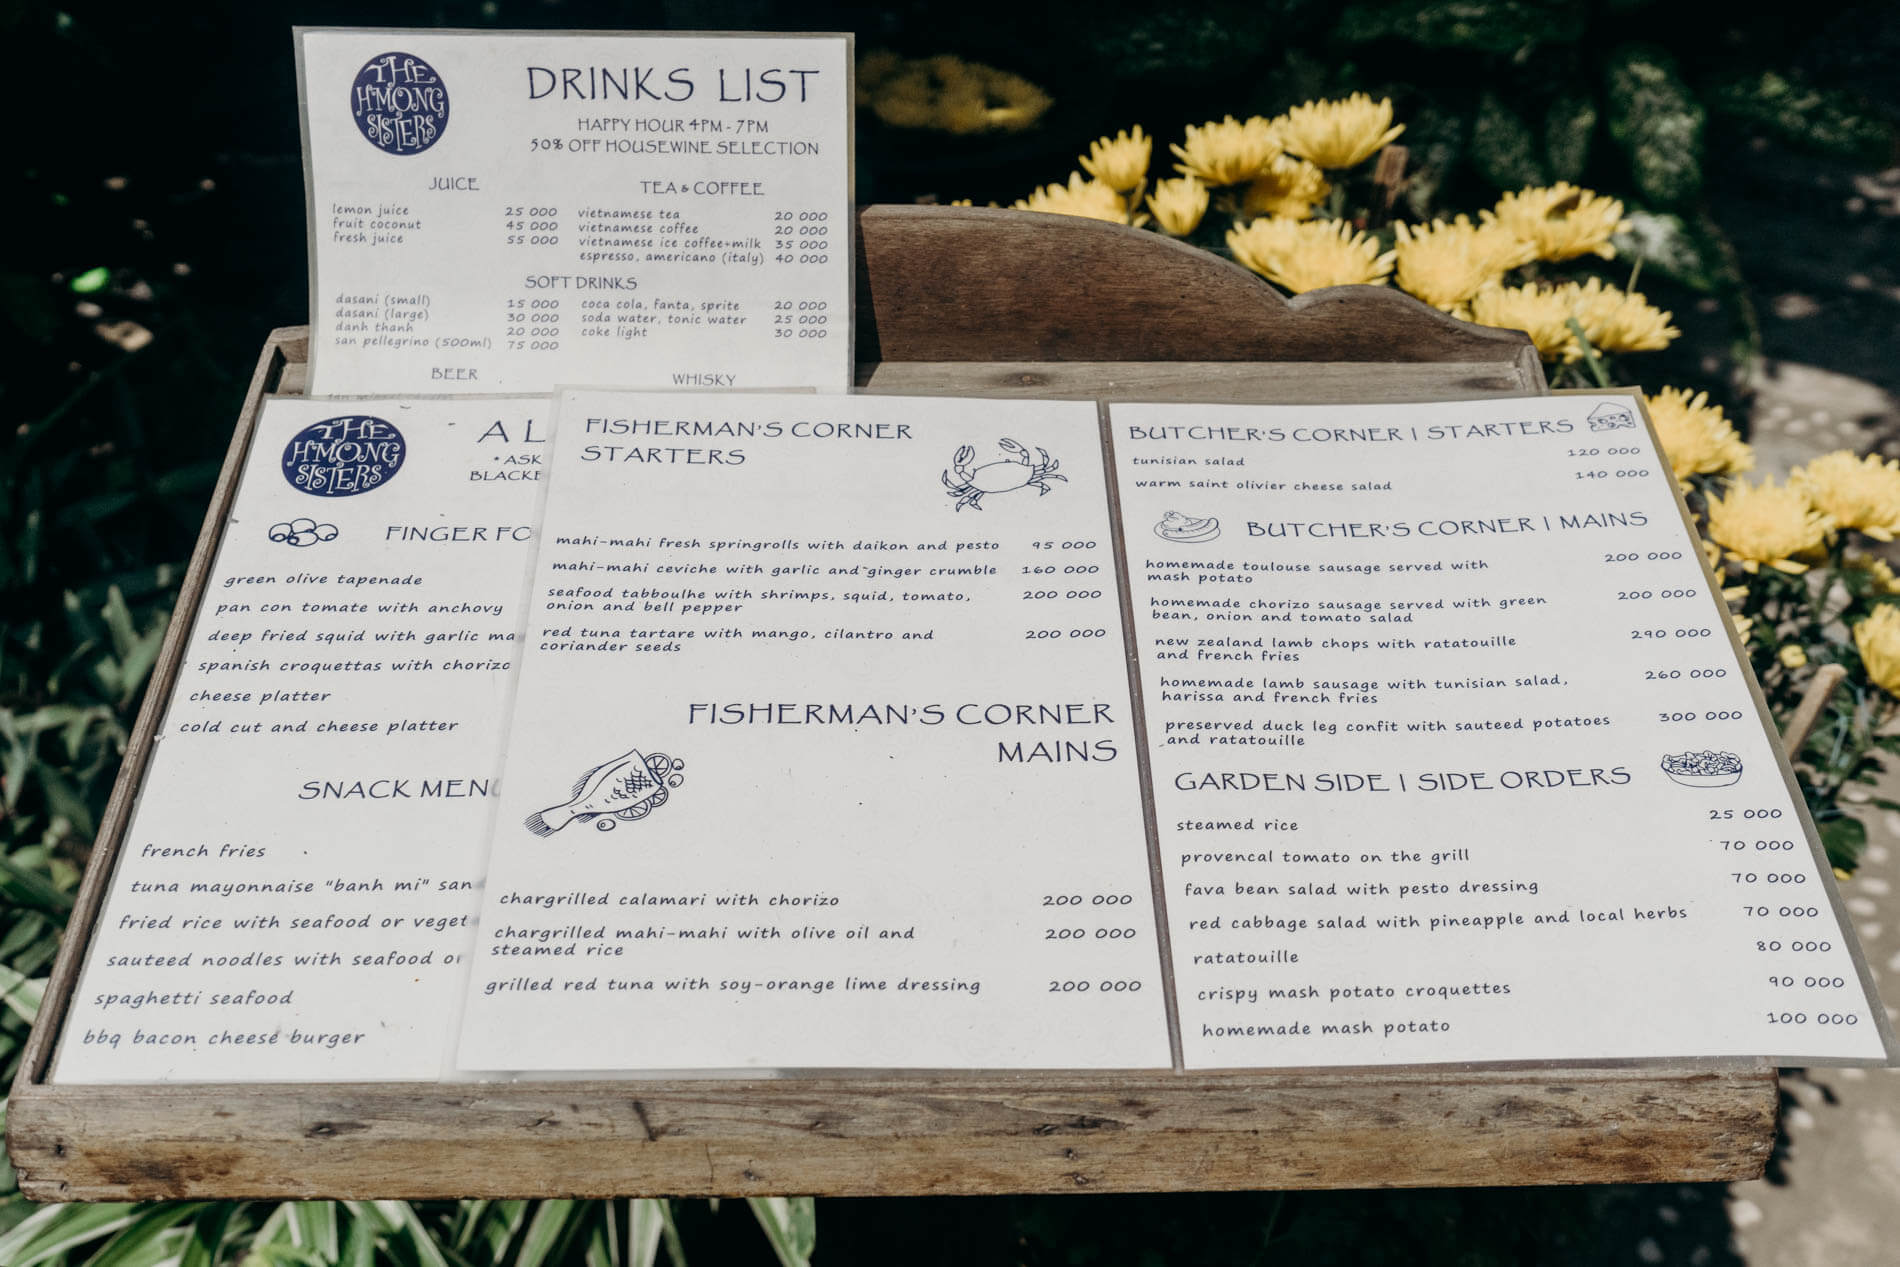 THE
H'MONG
SISTERS
DRINKS LIST
HAPPY HOUR 4PM - 7PM
50% OFF HOUSEWINE SELECTION
JUICE
lemon juice 25 000
fruit coconut 45 000
fresh juice 55 000
TEA & COFFEE
vietnamese tea 20 000
vietnamese coffee 20 000
vietnamese ice coffee+milk 35 000
espresso, americano (italy) 40 000
SOFT DRINKS
dasani (small) 15 000
dasani (large) 30 000
danh thanh 20 000
san pellegrino (500ml) 75 000
coca cola, fanta, sprite 20 000
soda water, tonic water 25 000
coke light 30 000
BEER
WHISKY
THE
H'MONG
SISTERS
A L
* ASK
BLACKB
FINGER FO
green olive tapenade
pan con tomate with anchovy
deep fried squid with garlic ma
spanish croquettas with chorizo
cheese platter
cold cut and cheese platter
SNACK MENU
french fries
tuna mayonnaise "banh mi" san
fried rice with seafood or veget
sauteed noodles with seafood or
spaghetti seafood
bbq bacon cheese burger
FISHERMAN'S CORNER
STARTERS
mahi-mahi fresh springrolls with daikon and pesto 95 000
mahi-mahi ceviche with garlic and ginger crumble 160 000
seafood tabboulhe with shrimps, squid, tomato, 200 000
onion and bell pepper
red tuna tartare with mango, cilantro and 200 000
coriander seeds
FISHERMAN'S CORNER
MAINS
chargrilled calamari with chorizo 200 000
chargrilled mahi-mahi with olive oil and 200 000
steamed rice
grilled red tuna with soy-orange lime dressing 200 000
BUTCHER'S CORNER | STARTERS
tunisian salad 120 000
warm saint olivier cheese salad 140 000
BUTCHER'S CORNER | MAINS
homemade toulouse sausage served with 200 000
mash potato
homemade chorizo sausage served with green 200 000
bean, onion and tomato salad
new zealand lamb chops with ratatouille 290 000
and french fries
homemade lamb sausage with tunisian salad, 260 000
harissa and french fries
preserved duck leg confit with sauteed potatoes 300 000
and ratatouille
GARDEN SIDE | SIDE ORDERS
steamed rice 25 000
provencal tomato on the grill 70 000
fava bean salad with pesto dressing 70 000
red cabbage salad with pineapple and local herbs 70 000
ratatouille 80 000
crispy mash potato croquettes 90 000
homemade mash potato 100 000